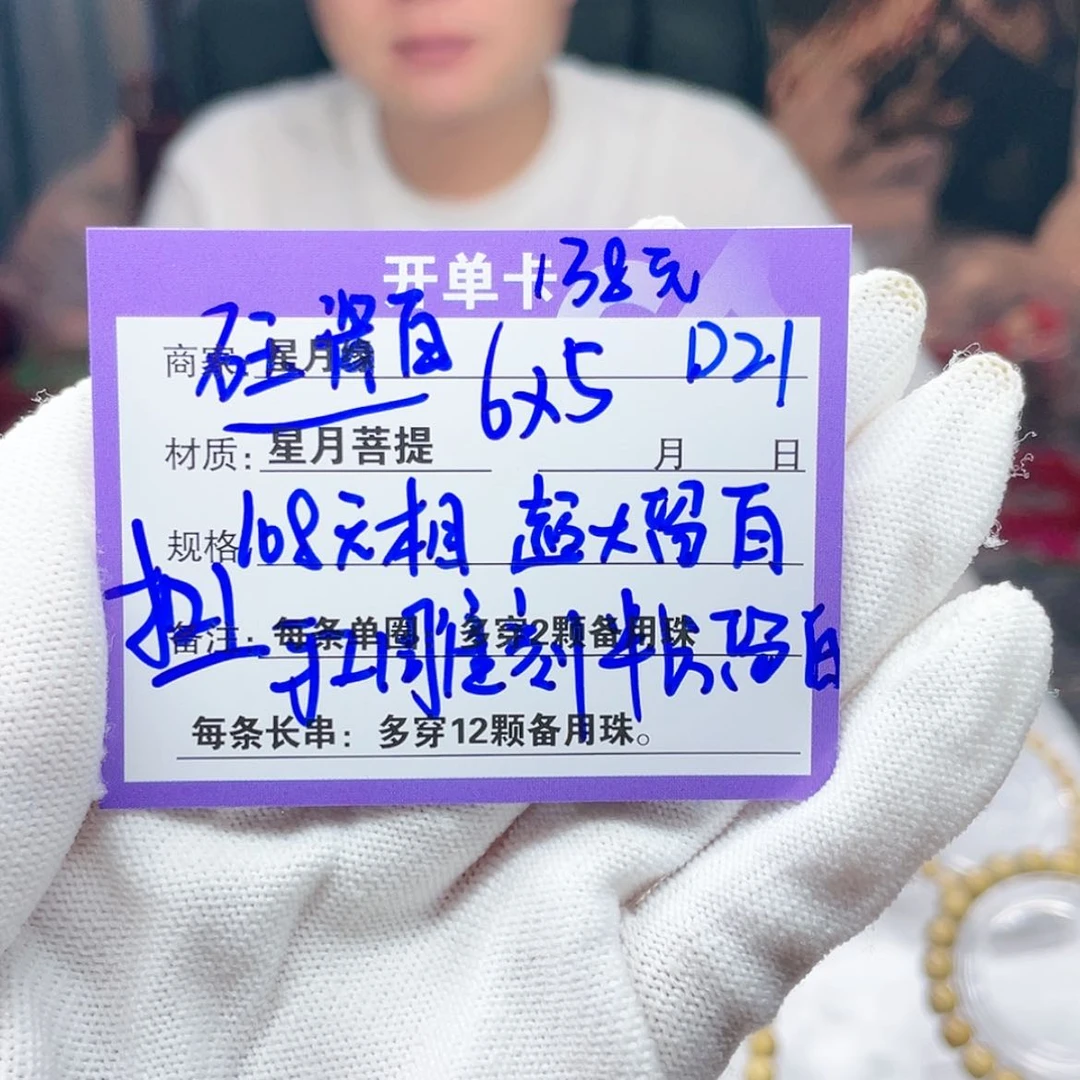 开单卡 138元
商家：星月缘 6x5 D21
材质：星月菩提 月 日
规格 108无相 超大留白
备注：每条单圈：多穿2颗备用珠
手工雕刻半长留白
每条长串：多穿12颗备用珠。